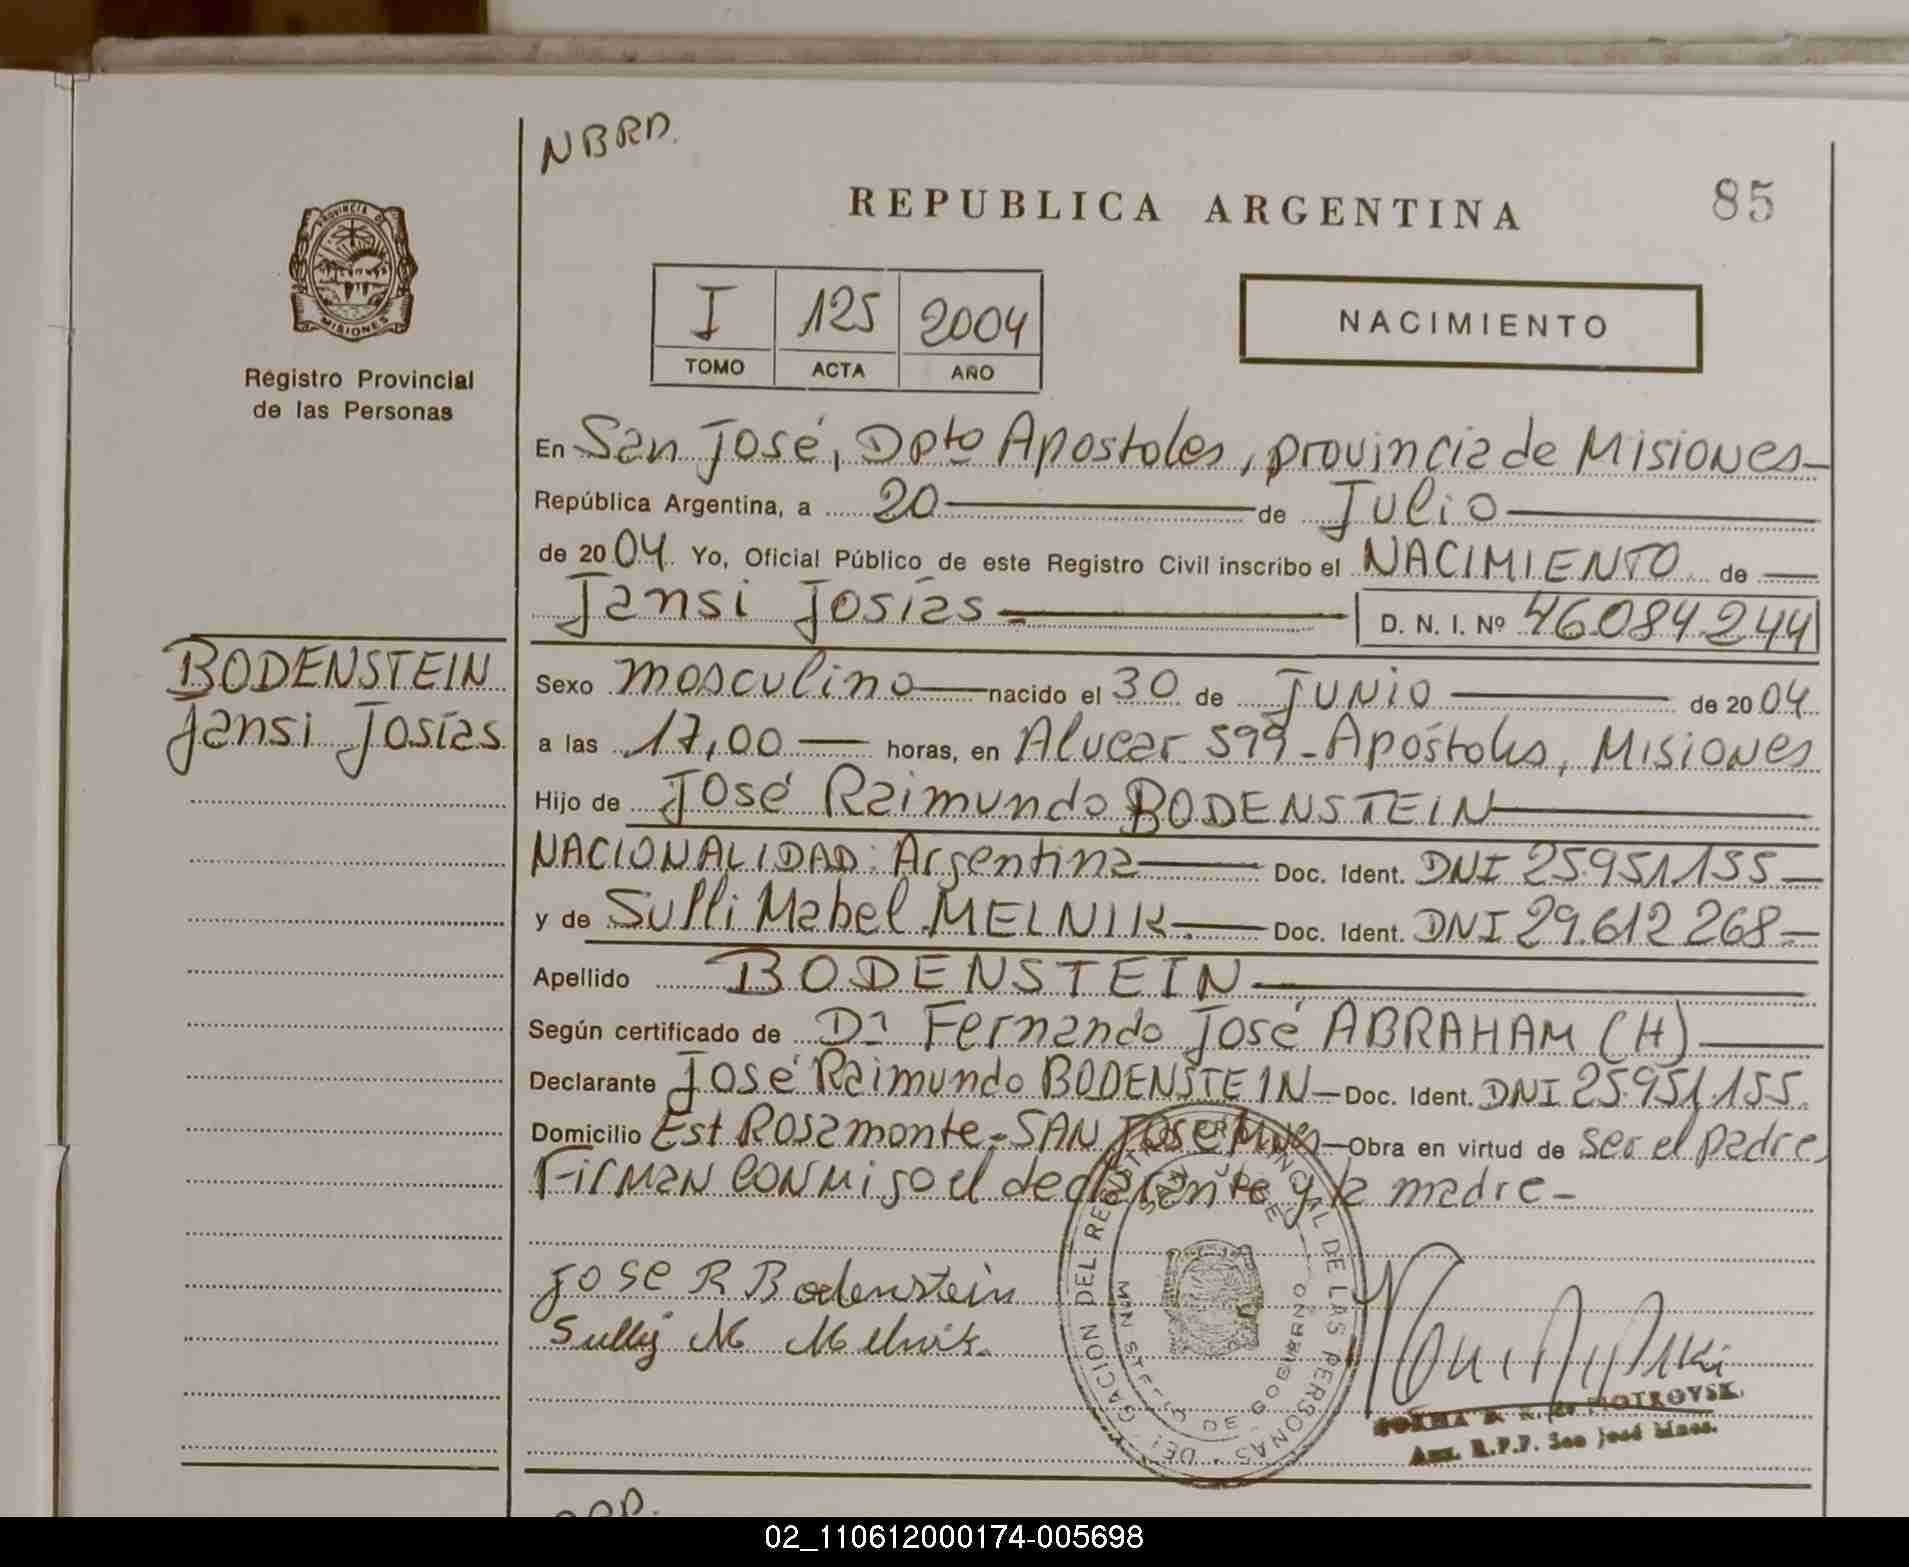 NBRD.
REPUBLICA ARGENTINA
85
PROVINCIA D
MISIONES
Registro Provincial
de las Personas
I 125 2004
TOMO ACTA AÑO
NACIMIENTO
En San José, Dpto Apostoles, provincia de Misiones
República Argentina, a 20 de Julio
de 2004. Yo, Oficial Público de este Registro Civil inscribo el NACIMIENTO de
Jansi Josías D. N. I. Nº 46084244
BODENSTEIN
Jansi Josías
Sexo masculino nacido el 30 de JUNIO de 2004
a las 17,00 horas, en Alvear 599 - Apóstoles, Misiones
Hijo de José Raimundo BODENSTEIN
NACIONALIDAD: Argentina Doc. Ident. DNI 25.951.155
y de Sulli Mabel MELNIK. Doc. Ident. DNI 29.612.268
Apellido BODENSTEIN
Según certificado de Dn Fernando José ABRAHAM (H)
Declarante José Raimundo BODENSTEIN Doc. Ident. DNI 25.951.155.
Domicilio Est Rosamonte - SAN José Mnes Obra en virtud de ser el padre
Firman conmigo el declarante y la madre
Jose R Bodenstein
Sully M Melnik.
DELEGACION DEL REGISTRO PROVINCIAL DE LAS PERSONAS
SAN JOSE
MINISTERIO DE GOBIERNO
PIOTROVSK
Aux. R.P.P. San José Mnes.
02_110612000174-005698